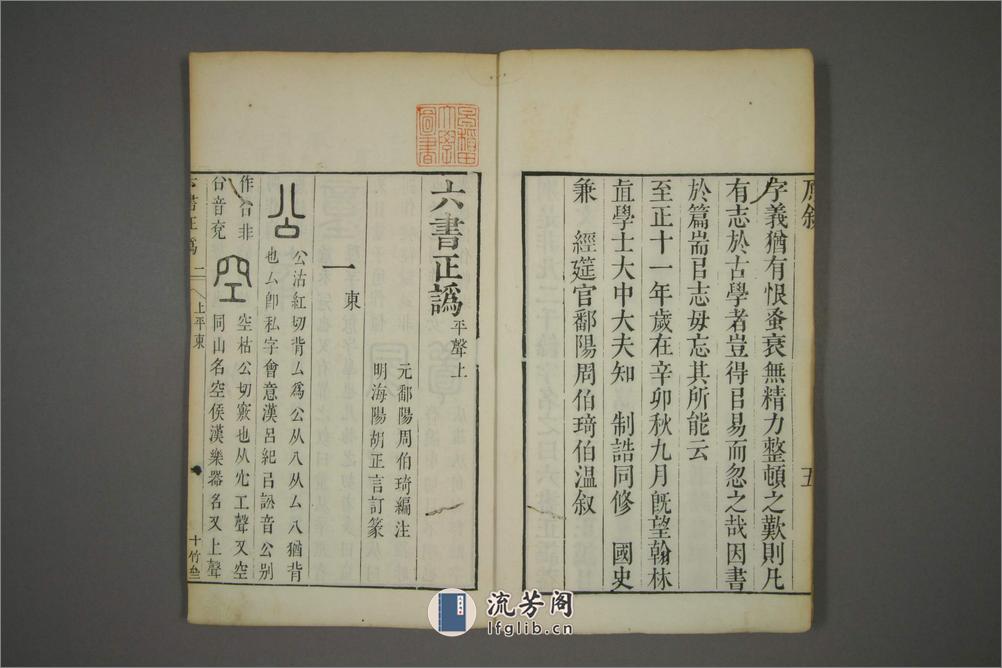 原叙 五
字義猶有恨蚤衰無精力整頓之歎則凡
有志於古學者豈得㠯易而忽之哉因書
於篇耑㠯志毋忘其所能云
至正十一年歲在辛卯秋九月旣望翰林
直學士大中大夫知 制誥同修 國史
兼 經筵官鄱陽周伯琦伯溫叙
早稻田大學圖書
六書正譌 平聲上
元鄱陽周伯琦編注
明海陽胡正言訂篆
一東
公 公沽紅切背厶爲公从八从厶八猶背
也厶卽私字會意漢呂紀㠯訟音公别
作㕣非
㕣音兖
空 空枯公切竅也从穴工聲又空
同山名空侯漢樂器名又上聲
六書正譌 二 上平東 十竹齋
流芳阁
lfglib.cn